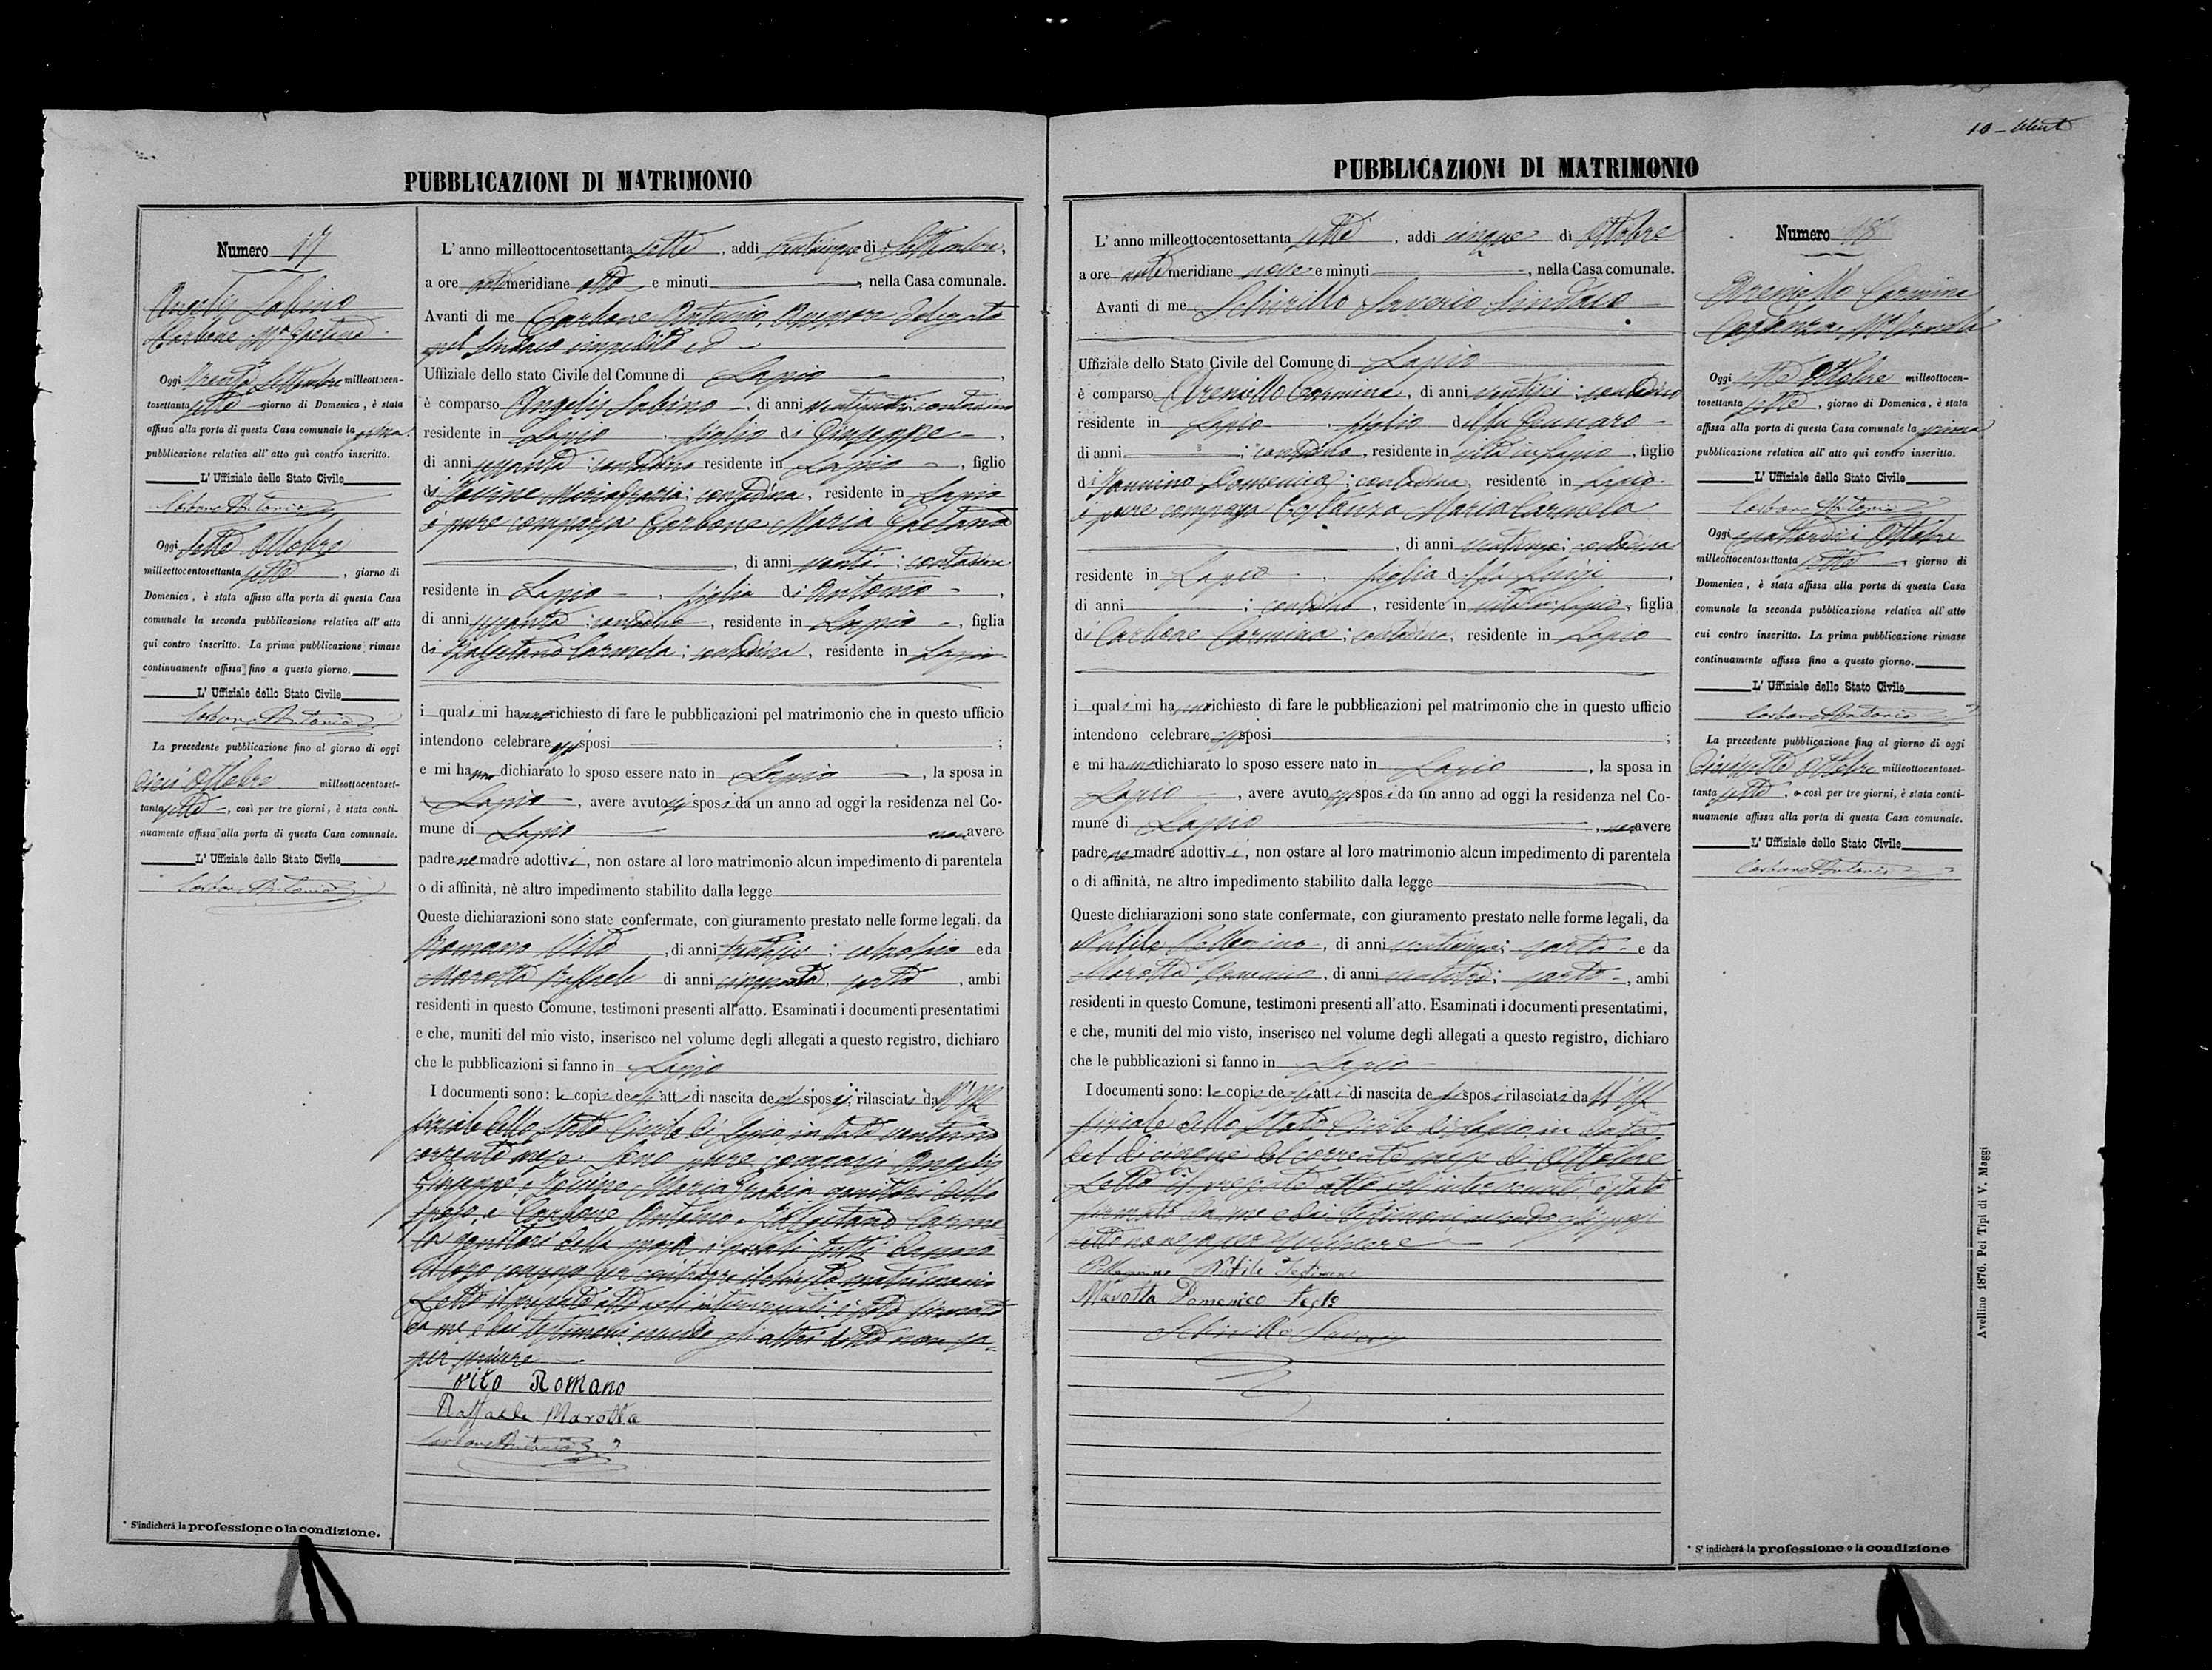 PUBBLICAZIONI DI MATRIMONIO
Numero 17
Angelis Sabino
Carbone Mª Gaetana
Oggi trenta Settembre milleottocen-
tosettanta sette giorno di Domenica, è stata
affissa alla porta di questa Casa comunale la prima
pubblicazione relativa all' atto quì contro inscritto.
L' Uffiziale dello Stato Civile
Carbone Antonio
Oggi sette Ottobre
milleottocentosettanta sette, giorno di
Domenica, è stata affissa alla porta di questa Casa
comunale la seconda pubblicazione relativa all' atto
qui contro inscritto. La prima pubblicazione rimase
continuamente affissa fino a questo giorno.
L' Uffiziale dello Stato Civile
Carbone Antonio
La precedente pubblicazione fino al giorno di oggi
dieci Ottobre milleottocentoset-
tanta sette, così per tre giorni, è stata conti-
nuamente affissa alla porta di questa Casa comunale.
L' Uffiziale dello Stato Civile
Carbone Antonio
* S'indicherá la professione o la condizione.
L' anno milleottocentosettanta sette, addi venticinque di Settembre,
a ore antimeridiane otto e minuti, nella Casa comunale.
Avanti di me Carbone Antonio, Assessore delegato
pel Sindaco impedito ed
Uffiziale dello stato Civile del Comune di Lapio,
è comparso Angelis Sabino, di anni contadino
residente in Lapio, figlio di Giuseppe,
di anni sessanta; contadino residente in Lapio, figlio
di Iovine Mariagrazia; contadina, residente in Lapio
è pure comparsa Carbone Maria Gaetana
, di anni venti; contadina
residente in Lapio, figlia di Antonio,
di anni sessanta; contadino, residente in Lapio, figlia
di Carmela; contadina, residente in Lapio
i quali mi hanno richiesto di fare le pubblicazioni pel matrimonio che in questo ufficio
intendono celebrare essi sposi;
e mi hanno dichiarato lo sposo essere nato in Lapio, la sposa in
Lapio, avere avuto essi sposi da un anno ad oggi la residenza nel Co-
mune di Lapio non avere
padre ne madre adottivi, non ostare al loro matrimonio alcun impedimento di parentela
o di affinità, nè altro impedimento stabilito dalla legge
Queste dichiarazioni sono state confermate, con giuramento prestato nelle forme legali, da
Romano Vito, di anni; e da
Marotta Raffaele di anni cinquanta, sarto, ambi
residenti in questo Comune, testimoni presenti all'atto. Esaminati i documenti presentatimi
e che, muniti del mio visto, inserisco nel volume degli allegati a questo registro, dichiaro
che le pubblicazioni si fanno in Lapio
I documenti sono: le copie degli atti di nascita degli sposi, rilasciati da Uf-
fiziale dello Stato Civile di Lapio in data ventuno
corrente mese. Sono pure comparsi Angelis
Giuseppe, e Iovine Maria Grazia genitori dello
sposo, e Carbone Antonio e Carme-
la genitori della sposa i quali tutti danno
il loro consenso per contrarre il chiesto matrimonio
Letto il presente atto agli intervenuti è stato firmato
da me e dai testimoni avendo gli altri detto non sa-
per scrivere
Vito Romano
Raffaele Marotta
Carbone Antonio
10 -
PUBBLICAZIONI DI MATRIMONIO
L' anno milleottocentosettanta sette, addi cinque di Ottobre
a ore antimeridiane nove e minuti, nella Casa comunale.
Avanti di me Schirillo Saverio Sindaco
Uffiziale dello Stato Civile del Comune di Lapio
è comparso Oreniello Carmine, di anni; contadino
residente in Lapio, figlio del fu Gennaro
di anni; contadino, residente in vita in Lapio, figlio
di Iannino Domenica; contadina, residente in Lapio
è pure comparsa Costanza Maria Carmela
, di anni; contadina
residente in Lapio, figlia del fu Luigi,
di anni; contadino, residente in vita in Lapio, figlia
di Carbone Carmina; contadina, residente in Lapio
i quali mi hanno richiesto di fare le pubblicazioni pel matrimonio che in questo ufficio
intendono celebrare essi sposi;
e mi hanno dichiarato lo sposo essere nato in Lapio, la sposa in
Lapio, avere avuto essi sposi da un anno ad oggi la residenza nel Co-
mune di Lapio, non avere
padre ne madre adottivi, non ostare al loro matrimonio alcun impedimento di parentela
o di affinità, ne altro impedimento stabilito dalla legge
Queste dichiarazioni sono state confermate, con giuramento prestato nelle forme legali, da
Nutile Pellegrino, di anni; sarto e da
Marotta Domenico, di anni; sarto, ambi
residenti in questo Comune, testimoni presenti all'atto. Esaminati i documenti presentatimi,
e che, muniti del mio visto, inserisco nel volume degli allegati a questo registro, dichiaro
che le pubblicazioni si fanno in Lapio
I documenti sono: le copie degli atti di nascita degli sposi rilasciati da Uf-
fiziale dello Stato Civile di Lapio in data
del dì cinque del corrente mese di Ottobre
Letto il presente atto agli intervenuti è stato
firmato da me e dai testimoni avendo gli sposi
detto non sapere scrivere
Pellegrino Nutile Testimone
Marotta Domenico Testo
Schirillo Saverio
Numero 18
Oreniello Carmine
Costanza Mª Carmela
Oggi sette Ottobre milleottocen-
tosettanta sette, giorno di Domenica, è stata
affissa alla porta di questa Casa comunale la prima
pubblicazione relativa all' atto quì contro inscritto.
L' Uffiziale dello Stato Civile
Carbone Antonio
Oggi quattordici Ottobre
milleottocentosettanta sette, giorno di
Domenica, è stata affissa alla porta di questa Casa
comunale la seconda pubblicazione relativa all' atto
cui contro inscritto. La prima pubblicazione rimase
continuamente affissa fino a questo giorno.
L' Uffiziale dello Stato Civile
Carbone Antonio
La precedente pubblicazione fino al giorno di oggi
diciassette Ottobre milleottocentoset-
tanta sette, e così per tre giorni, è stata conti-
nuamente affissa alla porta di questa Casa comunale.
L' Uffiziale dello Stato Civile
Carbone Antonio
* S' indicherá la professione o la condizione
Avellino 1876. Pei Tipi di V. Maggi